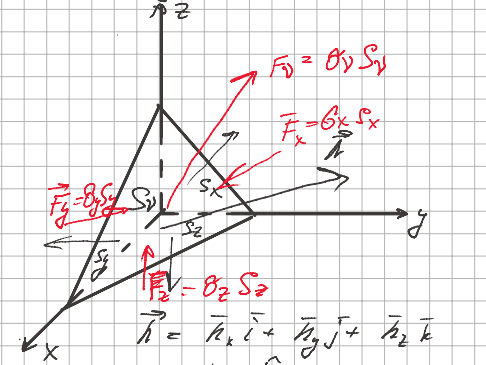 z
F̄ᵥ = σᵥ Sᵥ
F̄ₓ = σₓ Sₓ
n⃗
Sₓ
F⃗y = σy Sy
Sᵥ
S_z
y
Sy
F_z = σ_z S_z
n⃗ = n̄ₓ i̅ + n̄y j̅ + n̄_z k̅
x